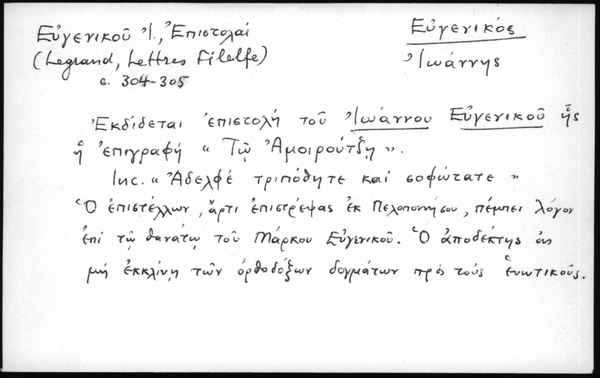 Εὐγενικοῦ Ἰ., Ἐπιστολαί
(Legrand, Lettres Filelfe)
σ. 304-305
Εὐγενικός
Ἰωάννης
Ἐκδίδεται ἐπιστολή τοῦ Ἰωάννου Εὐγενικοῦ ἧς
ἡ ἐπιγραφή « Τῷ Ἀμοιρούτζῃ ».
Inc. « Ἀδελφέ τριπόθητε καί σοφώτατε »
Ὁ ἐπιστέλλων, ἄρτι ἐπιστρέψας ἐκ Πελοποννήσου, πέμπει λόγον
ἐπί τῷ θανάτῳ τοῦ Μάρκου Εὐγενικοῦ. Ὁ ἀποδέκτης ἄς
μή ἐκκλίνῃ τῶν ὀρθοδόξων δογμάτων πρός τούς ἑνωτικούς.